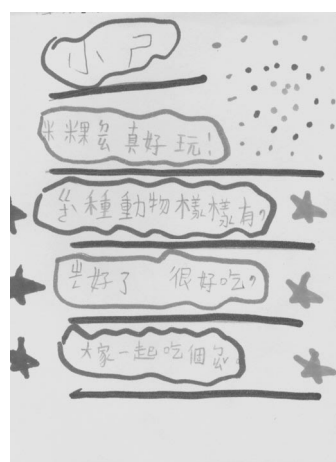 小ㄕ
米粿真好玩!
ㄍㄜˋ種動物樣樣有,
ㄓㄥ好了 很好吃,
大家一起吃個ㄅㄠˇ。